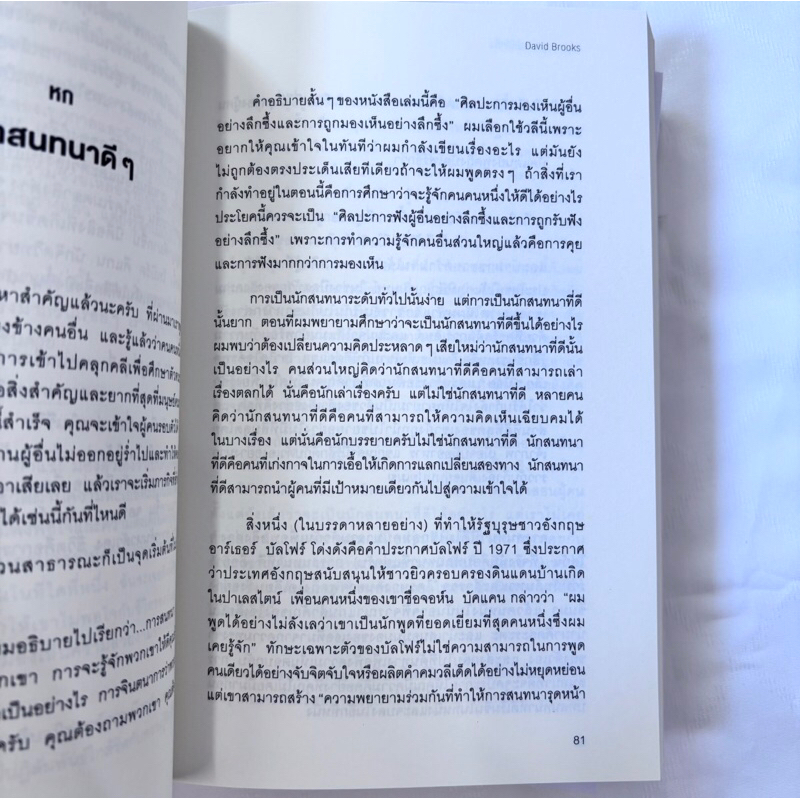 หก
สนทนาดี ๆ
หาสำคัญแล้วนะครับ ที่ผ่านมาเรา
ข้างคนอื่น และรู้แล้วว่าคนคน
การเข้าไปคลุกคลีเพื่อศึกษาตัว
สิ่งสำคัญและยากที่สุดที่มนุษย์
นี้สำเร็จ คุณจะเข้าใจผู้คนรอบตัว
านผู้อื่นไม่ออกอยู่ร่ำไปและทำ
าเสียเลย แล้วเราจะเริ่มภารกิจ
ได้เช่นนี้กันที่ไหนดี
วนสาธารณะก็เป็นจุดเริ่มต้น
มอธิบายไปเรียกว่า...การสนทนา
กเขา การจะรู้จักพวกเขาให้ดี
เป็นอย่างไร การจินตนาการว่า
ครับ คุณต้องถามพวกเขา
David Brooks
คำอธิบายสั้น ๆ ของหนังสือเล่มนี้คือ “ศิลปะการมองเห็นผู้อื่น
อย่างลึกซึ้งและการถูกมองเห็นอย่างลึกซึ้ง” ผมเลือกใช้วลีนี้เพราะ
อยากให้คุณเข้าใจในทันทีว่าผมกำลังเขียนเรื่องอะไร แต่มันยัง
ไม่ถูกต้องตรงประเด็นเสียทีเดียวถ้าจะให้ผมพูดตรง ๆ ถ้าสิ่งที่เรา
กำลังทำอยู่ในตอนนี้คือการศึกษาว่าจะรู้จักคนคนหนึ่งให้ดีได้อย่างไร
ประโยคนี้ควรจะเป็น “ศิลปะการฟังผู้อื่นอย่างลึกซึ้งและการถูกรับฟัง
อย่างลึกซึ้ง” เพราะการทำความรู้จักคนอื่นส่วนใหญ่แล้วคือการคุย
และการฟังมากกว่าการมองเห็น
การเป็นนักสนทนาระดับทั่วไปนั้นง่าย แต่การเป็นนักสนทนาที่ดี
นั้นยาก ตอนที่ผมพยายามศึกษาว่าจะเป็นนักสนทนาที่ดีขึ้นได้อย่างไร
ผมพบว่าต้องเปลี่ยนความคิดประหลาด ๆ เสียใหม่ว่านักสนทนาที่ดีนั้น
เป็นอย่างไร คนส่วนใหญ่คิดว่านักสนทนาที่ดีคือคนที่สามารถเล่า
เรื่องตลกได้ นั่นคือนักเล่าเรื่องครับ แต่ไม่ใช่นักสนทนาที่ดี หลายคน
คิดว่านักสนทนาที่ดีคือคนที่สามารถให้ความคิดเห็นเฉียบคมได้
ในบางเรื่อง แต่นั่นคือนักบรรยายครับไม่ใช่นักสนทนาที่ดี นักสนทนา
ที่ดีคือคนที่เก่งกาจในการเอื้อให้เกิดการแลกเปลี่ยนสองทาง นักสนทนา
ที่ดีสามารถนำผู้คนที่มีเป้าหมายเดียวกันไปสู่ความเข้าใจได้
สิ่งหนึ่ง (ในบรรดาหลายอย่าง) ที่ทำให้รัฐบุรุษชาวอังกฤษ
อาร์เธอร์ บัลโฟร์ โด่งดังคือคำประกาศบัลโฟร์ ปี 1971 ซึ่งประกาศ
ว่าประเทศอังกฤษสนับสนุนให้ชาวยิวครอบครองดินแดนบ้านเกิด
ในปาเลสไตน์ เพื่อนคนหนึ่งของเขาชื่อจอห์น บัคแคน กล่าวว่า “ผม
พูดได้อย่างไม่ลังเลว่าเขาเป็นนักพูดที่ยอดเยี่ยมที่สุดคนหนึ่งซึ่งผม
เคยรู้จัก” ทักษะเฉพาะตัวของบัลโฟร์ไม่ใช่ความสามารถในการพูด
คนเดียวได้อย่างจับจิตจับใจหรือผลิตคำคมวลีเด็ดได้อย่างไม่หยุดหย่อน
แต่เขาสามารถสร้าง “ความพยายามร่วมกันที่ทำให้การสนทนารุดหน้า
81